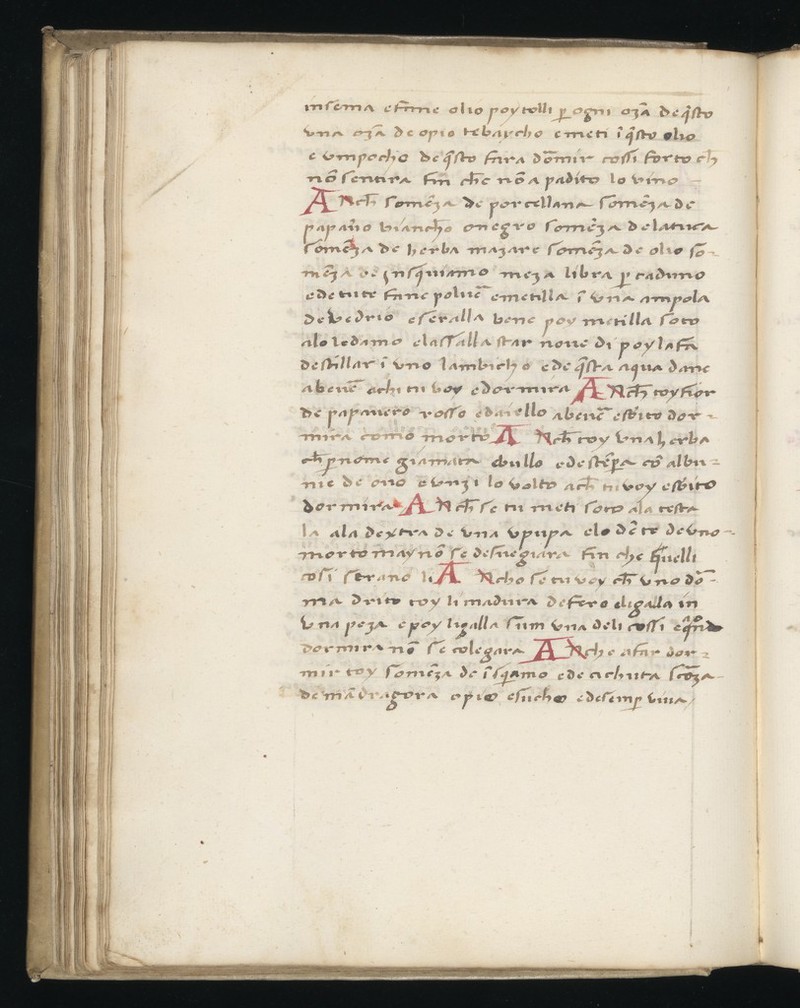 insema efane olio poy tolli p̱ ogni oza̅ de q̅sto
vna oza̅ de opio tebaycho e meti i̅ q̅sto olio
e vmpocho de q̅sto fara do̅mir cossi forto ch̅
no̅ sentira fin che no̅ a padito lo vino
ANch̅ some̅za de porcellana some̅za de
papau̅o biancho onegro some̅za de latuca
some̅za de herba mazare some̅za de olio so-
me̅za de insquiamo meza libra p̱ caduno
ede tute fane polue̅ emetilla i̅ vna ampola
de vedrio e seralla bene poy metilla soto
alo ledamo e lassalla star noue di poy la fa̅
destillar i̅ vno lambicho ede q̅sta aqua dane
abeue̅ achi tu voy edormira ANch̅ toy fior
de papauero rosso edaiello abeue̅ esbito dor-
mira como morto ANch̅ toy vna herba
ch̅ p̱ nome giamata ebullo ede ste̅pa co̅ albu-
me de ouo e vnzi lo volto ach̅ tu voy esbito
dormira ANch̅ se tu meti soto ala testa
la ala dextra de vna vpupa elo de̅te de vno
morto may no̅ se desuegiara fin che quelli
cosi serano li ANcho se tu voy ch̅ vno do̅-
ma drito toy limadura de fero eligalla in
vna peza epoy ligalla sum vna deli cossi eq̅ndo
dormira no̅ se colegara ANche afar dor-
mir toy some̅za de i̅sq̅iamo ede cichuta scoza
de ma̅dragora opio esucho edesemp̱ viua